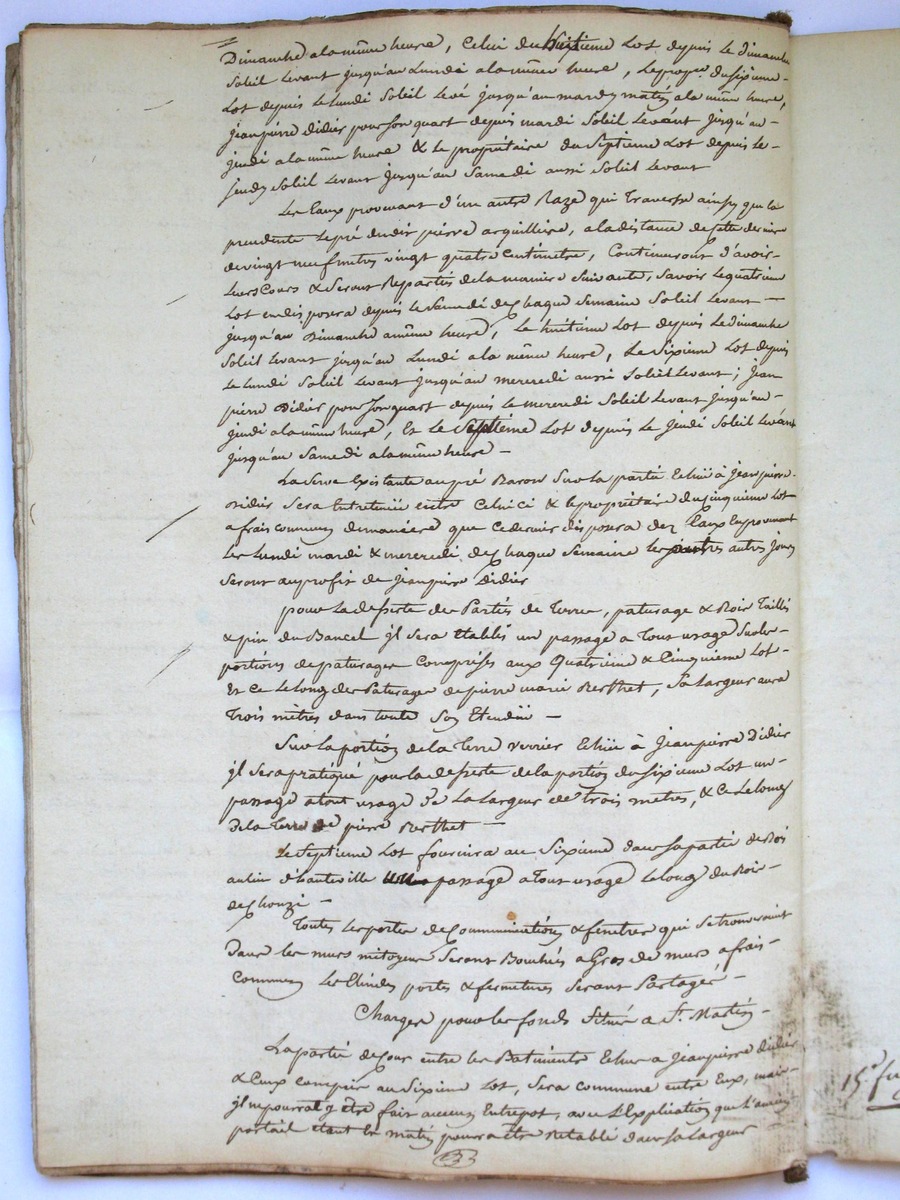 Dimanche a la même heure, Celui du huitieme Lot depuis le dimanche
Soleil Levant jusqu'au Lundi a la même heure, le propre du sixieme
Lot depuis le Lundi Soleil Levé jusqu'au mardy matin a la même heure,
jeanpierre didier pour son quart depuis mardi Soleil Levant jusqu'au
jeudi a la même heure & le propriétaire du Septieme Lot depuis le
jeudy Soleil Levant jusqu'au Samedi aussi Soleil Levant
Les Eaux provenant d'un autre Raze qui traverse ainsy que la
précdente le pré dudit pierre arquilliere, a la distance de cette derniere
de vingt neuf metres vingt quatre Centimetre, Continueront d'avoir
leurs Cours & Seront Repartis de la maniere Suivante, Savoir le quatrieme
Lot en disposera depuis le Samedi de Chaque Semaine Soleil Levant
jusqu'au Dimanche a même heure, le huitieme Lot depuis le dimanche
Soleil Levant jusqu'au Lundi a la même heure, le Sixieme Lot depuis
le Lundi Soleil Levant jusqu'au mercredi aussi Soleil Levant; Jean
pierre Didier pour Son quart depuis le mercredi Soleil Levant jusqu'au
jeudi a la même heure, Et le Septième Lot depuis le jeudi Soleil Levant
jusqu'au Samedi a la même heure
La Serve Existante au pré Baron Sur la partie Echuë à jeanpierre
Didier Sera Entretenüe entre Celui ci & le propriétaire du cinquieme Lot
a frais communs de maniere que ce dernier disposera des Eaux En provenant
les Lundi mardi & mercredi de Chaque Semaine les autres jours
Seront au profit de jeanpierre Didier
pour la desserte des Parties de terre, paturage & Bois Taillis
& pin du Bancel jl Sera établis un passage a tous usage Sur les
portions de paturages Comprises aux Quatrieme & Cinquieme Lot
Et ce Le Long des Paturages de pierre marie Berthet, Sa Largeur aura
trois mètres dans toute Son Etenduë
Sur la portion de la terre verrier Echuë à jeanpierre Didier
jl sera pratiqué pour la desserte de la portion du sixieme Lot un
passage a tout usage de La Largeur de trois metres, & Ce Le Long
de la terre de pierre Berthet
Le Septieme Lot fournira au Sixieme dans sa partie de Bois
au lieu d'hauteville passage a tous usage Le Long du Bois
de Chouzi
Toutes les portes de Communications & fenetres qui Se trouveraint
dans les murs mitoyens Seront Bouchés a Gros de murs a frais
communs Les portes & fermetures Seront Partagés
Charges pour les fonds Situés a St. Martin
La partie de Cour entre les Batiments Echus a jeanpierre didier
& Ceux compris au Sixieme Lot, Sera commune entre Eux, mais
jl ne pourra y être fait aucun Entrepot, avec L'Explication que L'ancien
portail étant En pourra être Retabli dans sa Largeur
15e